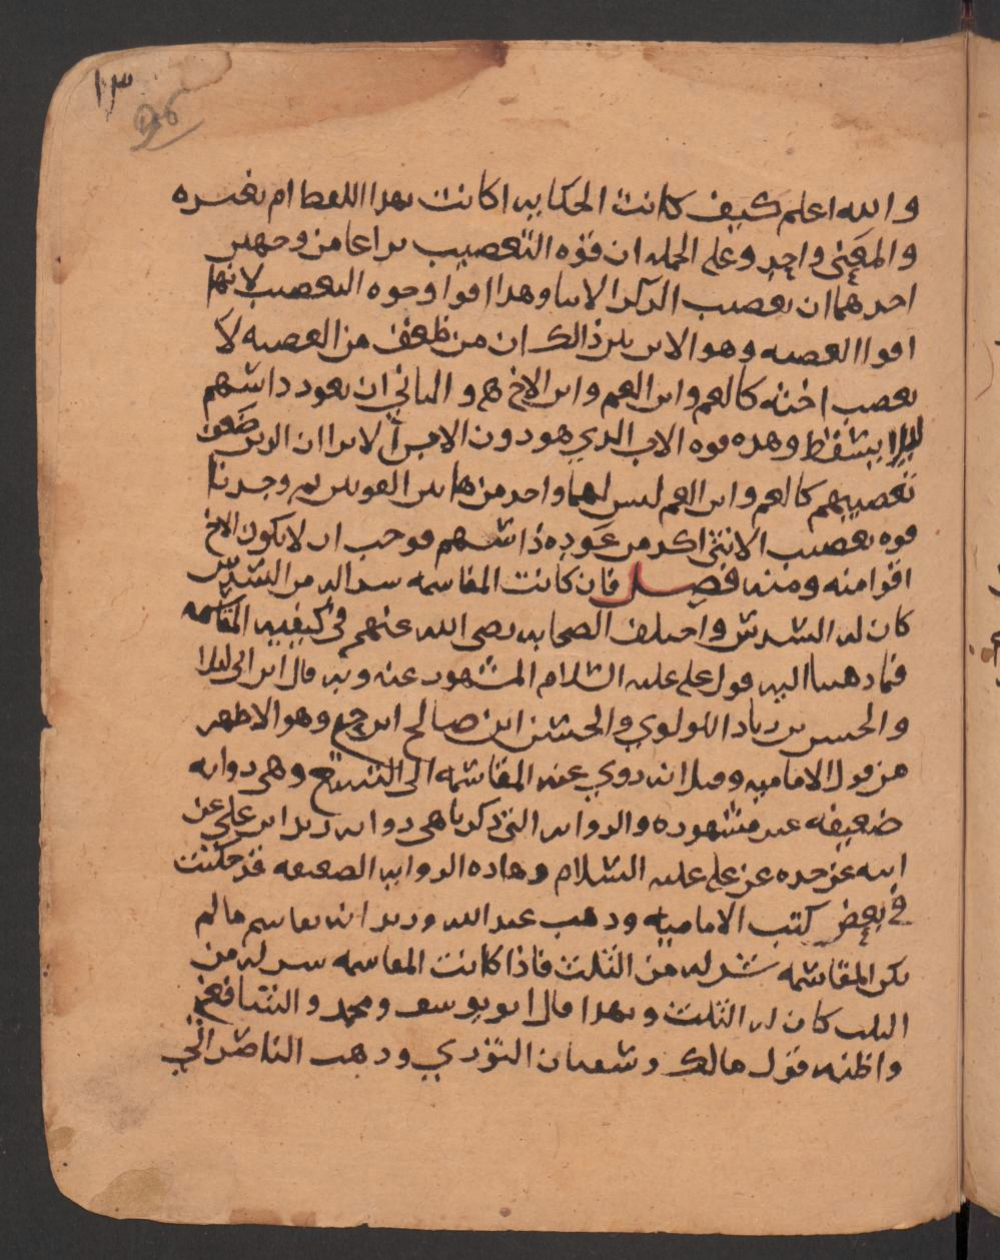 ١٠٣
والله اعلم كيف كانت الحكايه اكانت بهذا اللفظ ام بغيره
والمعنى واحد وعلى الجمله ان قوه التعصيب يراعا من وجهين
احدهما ان تعصيب الذكر الانثا وهذا اقوا وجوه التعصيب لانها
اقوا العصبه وهو الابن يبين ذالك ان من ضعف من العصبه لا
يعصب اخته كالعم وابن العم وابن الاخ والثاني ان يعود ذا سهم
ليلا يسقط وهذه قوه الاب الذي هو دون الابن الا ترا ان الذين ضعف
تعصيبهم كالعم وابن العم ليس لهما واحد من هاتين القوتين ثم وجدنا
قوه تعصيب الانثى اكد من عوده ذا سهم فوجب ان لا يكون الاخ
اقوا منه ومنه فصل فان كانت المقاسمه شرا له من السدس
كان له السدس واختلف الصحابه رضى الله عنهم في كيفيه المقاسمه
فما ذهبنا اليه قول علي عليه السلام المشهور عنه وبه قال ابن ابي ليلا
والحسن بن زياد اللولوي والحسن ابن صالح ابن حي وهو الاظهر
من قول الاماميه وقيل انه روي عنه المقاسمه الى التسع وهي روايه
ضعيفه غير مشهوره والروايه التي ذكرناها هي روايه زيد ابن علي عن
ابيه عن جده عن علي عليه السلام وهاذه الروايه الضعيفه قد حكيت
في بعض كتب الاماميه وذهب عبد الله وزيد انه يقاسم ما لم
تكن المقاسمه شر له من الثلث فاذا كانت المقاسمه شر له من
الثلث كان له الثلث وبهذا قال ابو يوسف ومحمد والشافعي
واظنه قول مالك وسفيان الثوري وذهب الناصر الى